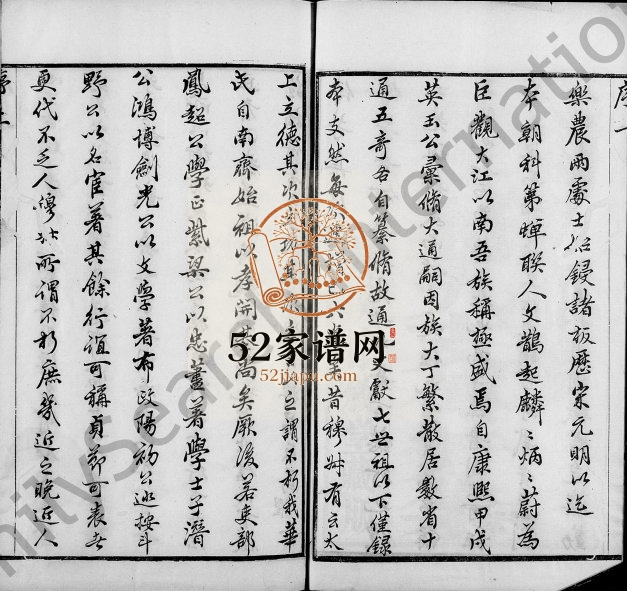 序一
樂農兩處士始鋟諸板歷宋元明以迄
本朝科第蟬聯人文鵲起麟〻炳〻蔚為
巨觀大江以南吾族稱極盛焉自康熙甲戌
英玉公彙脩大通嗣因族大丁繁散居數省十
通五奇各自纂脩故通 文獻七世祖以下僅錄
本支然每 昔穆叔有云太
上立德其次 之謂不朽我華
氏自南齊始祖以孝開其 矣厥後若吏部
鳳超公學正紫梁公以忠藎著學士子潛
公鴻博劍光公以文學著布政陽初公巡按斗
野公以名宦著其餘行誼可稱貞節可表者
更代不乏人穆叔所謂不朽庶幾近之晚近人
52家谱网
52jiapu.com